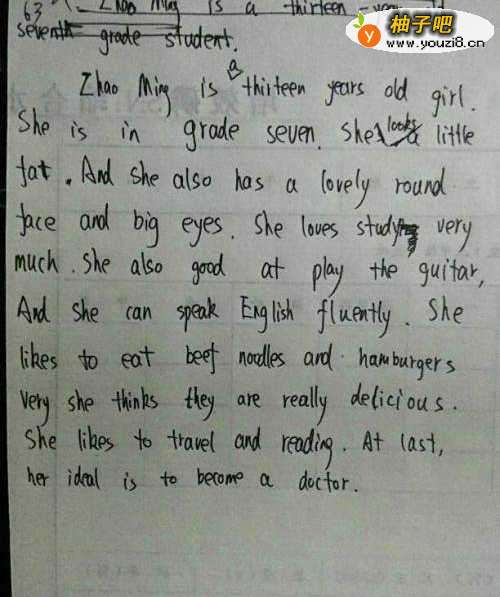 63
Zhao Ming is a thirteen-year
柚子吧
www.youzi8.cn
seventh grade student.
Zhao Ming is a thirteen years old girl.
She is in grade seven. She looks a little
fat. And she also has a lovely round
face and big eyes. She loves study very
much. She also good at play the guitar,
And she can speak English fluently. She
likes to eat beef noodles and hamburgers
very she thinks they are really delicious.
She likes to travel and reading. At last,
her ideal is to become a doctor.